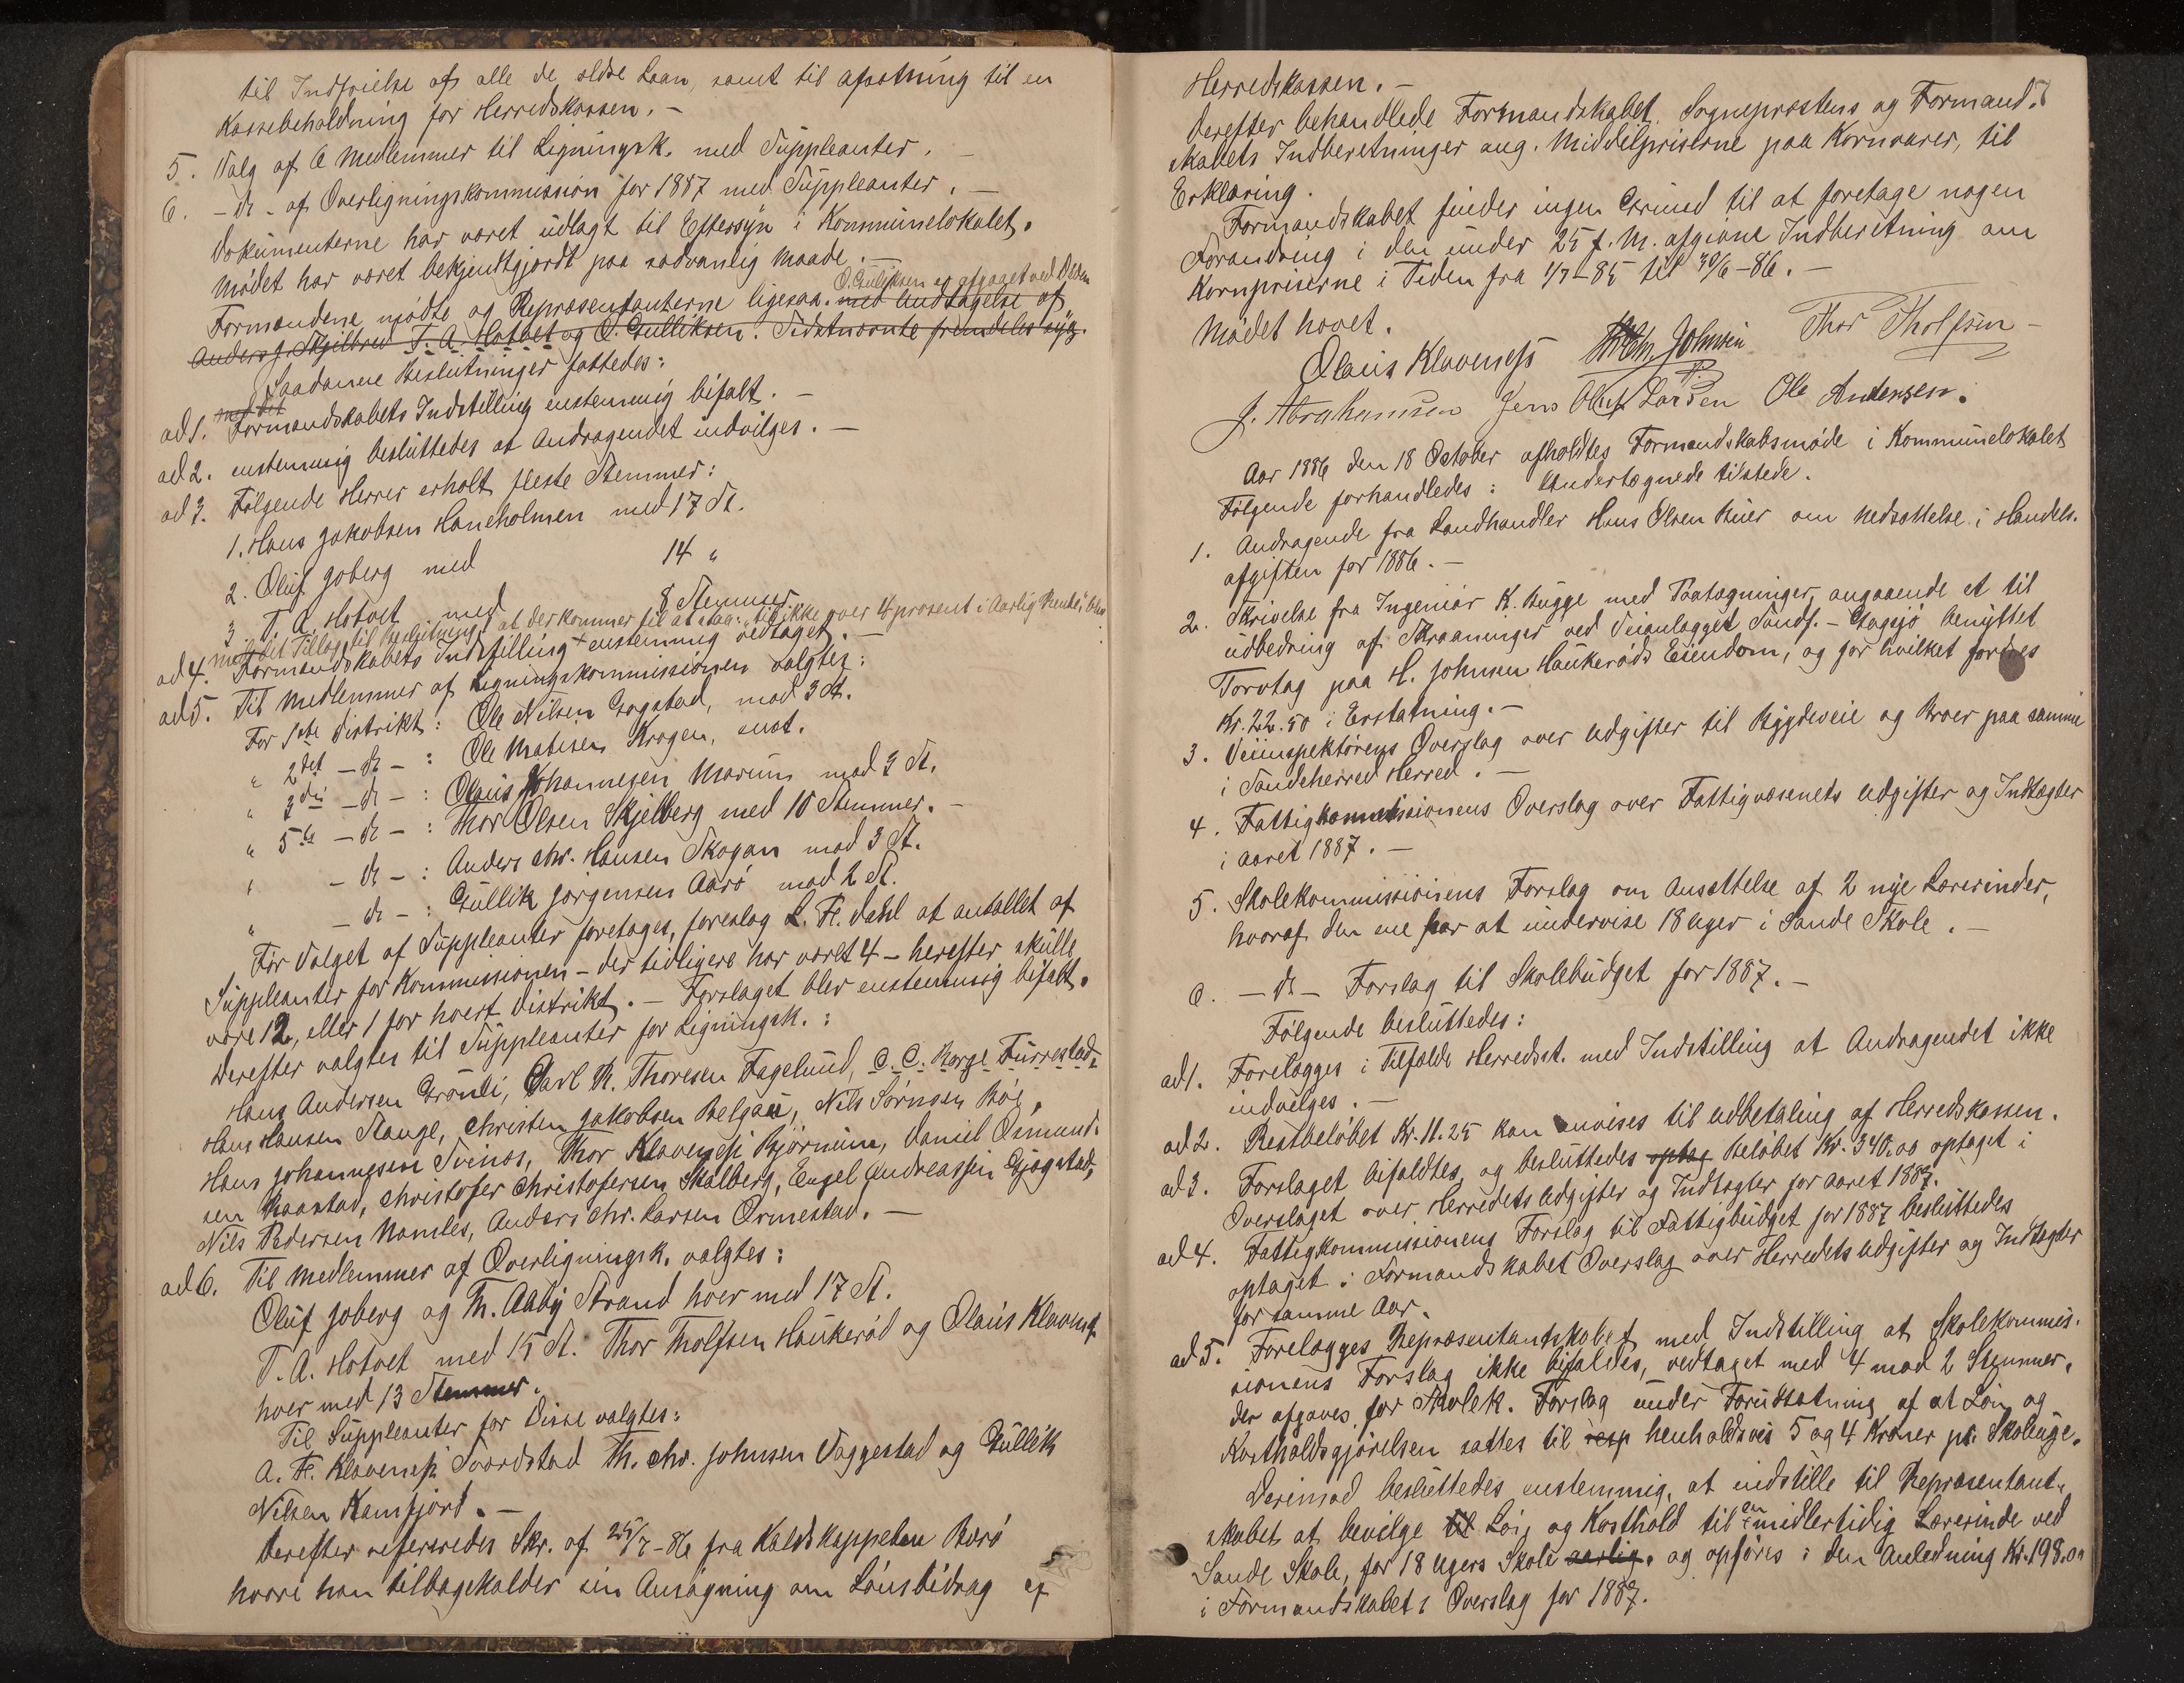 til Indfrielse af alle de ældre Laan, samt til afsætning til en
Kassebeholdning for Herredskassen. -
5. Valg af 6 Medlemmer til Ligningsk. med Suppleanter. -
6. - Do - af Overligningskommission for 1887 med Suppleanter. -
Dokumenterne har været udlagt til Eftersyn i Kommunelokalet.
Mødet har været bekjendtgjordt paa sædvanlig Maade. -
O. Gulliksen er afgaaet ved Døden
Formændene mødte og Repræsentanterne ligesaa. med Undtagelse af
Anders J. Skjelbred T. A. Hotvet og O. Gulliksen. Sidstnævnte fremdeles syg.
Saadanne Beslutninger fattedes:
ad 1. Formandskabets Indstilling enstemmig bifalt. -
ad 2. enstemmig besluttedes at Andragendet indvilges. -
ad 3. Følgende Herrer erholt fleste Stemmer:
1. Hans Jakobsen Haneholmen med 17 St.
2. Oluf Joberg med 14 "
3. T. A. Hotvet med 8 Stemmer
med det Tillæg til Beslutning at der kommer til at staa: "til ikke over 4 prosent i Aarlig Rente"
ad 4. Formandskabets Indstilling + enstemmig vedtaget. -
ad 5. Til Medlemmer af Ligningskommissionen valgtes:
For 1ste Distrikt: Ole Nilsen Gogstad, mod 3 St.
" 2det - do - : Ole Matisen Krogen, enst.
" 3die - do - : Olaus Johannesen Marum mod 3 St.
" 5te - do - : Thor Olsen Skjelberg med 10 Stemmer. -
" - do - : Anders Chr. Hansen Skogan mod 3 St.
" - do - : Gullik Jørgensen Aarø mod 2 St.
Før Valget af Suppleanter foretoges, foreslog L. Fr. Dahl at antallet af
Suppleanter for Kommissionen - der tidligere har været 4 - herefter skulle
være 12, eller 1 for hvert Distrikt. - Forslaget blev enstemmig bifalt.
Derefter valgtes til Suppleanter for Ligningsk.:
Hans Andersen Grønli, Carl M. Thoresen Fagelund, C. C. Borge Furrestad,
Hans Hansen Stange, Christen Jakobsen Belgau, Nils Sørnsen Bøe,
Hans Johannessen Svinøs, Thor Klavenæss Bjørnum, Daniel Osmund-
sen Raastad, Christofer Christofersen Skalberg, Engel Andreassen Gjøgstad,
Nils Pedersen Namløs, Anders Chr. Larsen Ormestad. -
ad 6. Til Medlemmer af Overligningsk. valgtes:
Oluf Joberg og Th. Aaby Strand hver med 17 St.
T. A. Hotvet med 15 St. Thor Tholfsen Haukerød og Olaus Klavenæs
hver med 13 Stemmer.
Til Suppleanter for Disse valgtes:
A. Fr. Klavenæs Svordstad Th. Chr. Johnsen Vaggestad og Gullik
Nilsen Kamfjord. -
Derefter refereredes Skr. af 25/7-86 fra Kaldskappelan Borø
hvori han tilbagekalder sin Ansøgning om Lønsbidrag af
Herredskassen. -
Derefter behandlede Formandskabet Sogneprestens og Formand-
skabets Indberetninger ang. Middelpriserne paa Kornvarer, til
Erklæring.
Formandskabet finder ingen Grund til at foretage nogen
Forandring i den under 25 f. M. afgivne Indberetning om
Kornpriserne i Tiden fra 1/7-85 til 30/6-86. -
Mødet hævet.
Olaus Klavenæss Johnsen Thor Tholfsen
J. Abrahamsen Jens Oluf Larsen Ole Andersen.
Aar 1886 den 18 October afholdtes Formandskabsmøde i Kommunelokalet
Følgende forhandledes: Undertegnede tilstede.
1. Andragende fra Landhandler Hans Olsen Buer om Nedsættelse i Handels-
afgiften for 1886. -
2. Skrivelse fra Ingeniør K. Bugge med Paategninger, angaaende et til
udbedring af Skraaninger ved Veianlægget Sandf. - Gogsjø benyttet
Torvtag paa H. Johnsen Haukerøds Eiendom, og for hvilket fordres
Kr. 22.50 i Erstatning. -
3. Veiinspektørens Overslag over Udgifter til Bygdeveie og Broer paa samme
i Sandeherred Herred. -
4. Fattigkommissionens Overslag over Fattigvæsenets Udgifter og Indtægter
i Aaret 1887. -
5. Skolekommissionens Forslag om Ansættelse af 2 nye Lærerinder,
hvoraf den ene har at undervise 18 Uger i Sande Skole. -
6. - Do - Forslag til Skolebudget for 1887. -
Følgende besluttedes:
ad 1. Forelægges i Tilfælde Herredsst. med Indstilling at Andragendet ikke
indvilges. -
ad 2. Restbeløbet Kr. 11.25 kan anvises til Udbetaling af Herredskassen.
ad 3. Forslaget bifaldtes, og besluttedes optag Beløbet Kr. 340.00 optaget i
Overslaget over Herredets Udgifter og Indtægter for Aaret 1887.
ad 4. Fattigkommissionens Forslag til Fattigbudget for 1887 besluttedes
optaget i Formandskabet Overslag over Herredets Udgifter og Indtægter
for samme Aar.
ad 5. Forelægges Repræsentantskabet med Indstilling at Skolekommis-
sionens Forslag ikke bifaldes, vedtaget med 4 mod 2 Stemmer,
der afgaves for Skolek. Forslag under Forudsætning af at Løn og
Kostholdsgjørelsen sattes til resp henholdsvis 5 og 4 Kroner pr. Skoleuge.
Derimod besluttedes enstemmig, at indstille til Repræsentant-
skabet at bevilge til Løn og Kosthold til en midlertidig Lærerinde ved
Sande Skole, for 18 Ugers Skole aarlig, og opføres i den Anledning Kr. 198.00
i Formandskabets Overslag for 1887.